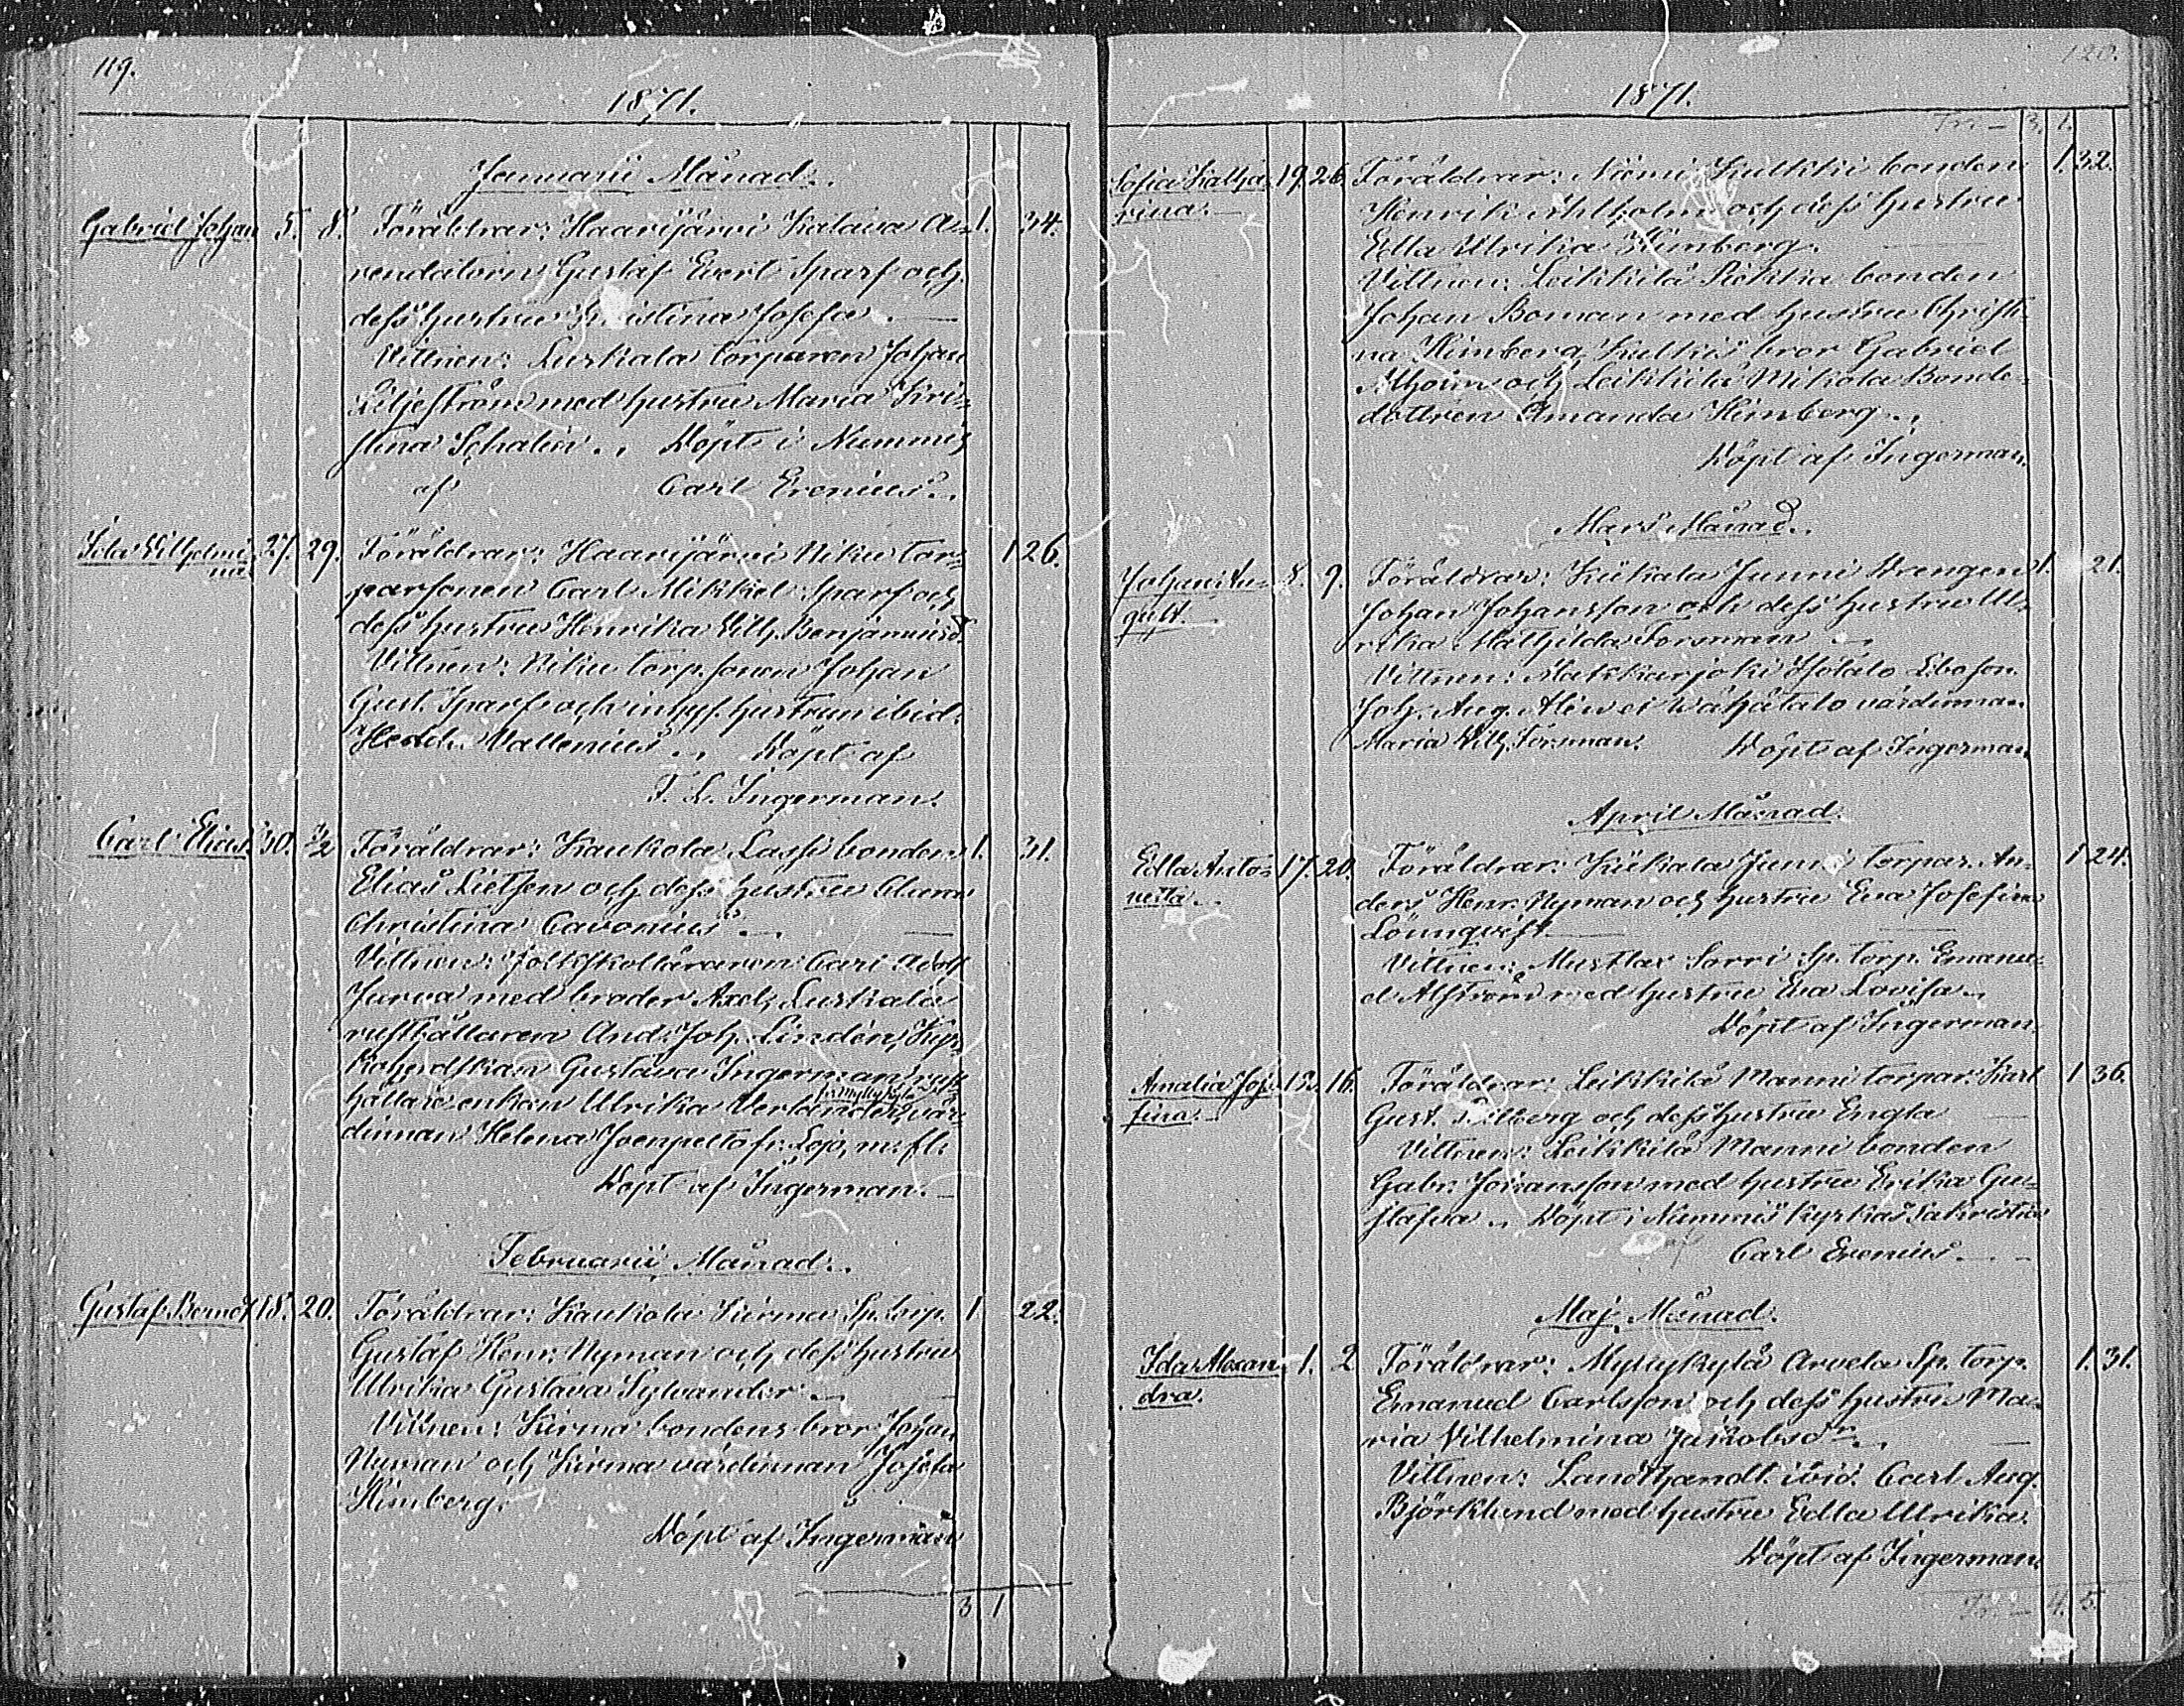 119.
1871.
Januarii Månad.
Gabriel Johan 5. 8. Föräldrar: Haarijärvi Katava A- 1. 34.
rendatorn Gustaf Evert Sparf och
dess hustru Kristina Josefa.
Vittnen: Luskala torparen Johan
Liljeström med hustru Maria Kri-
stina Schalin. Döpt i Nummis
af Carl Erenius.
Ida Vilhelmi- 27. 29. Föräldrar: Haarijärvi Niku tor- 1 26.
na. parsonen Carl Mikkel Sparf och
dess hustru Henrika Vilh. Benjaminsd.
Vittnen: Niku torp.sonen Johan
Gust. Sparf och inhys. hustrun ibid.
Hedd. Vallenius. Döpt af
F. L. Ingerman.
Carl Elias. 30. 1/2 Föräldrar: Kaukola Lassi bonden 1. 31.
Elias Lietzen och dess hustru Clara
Christina Cavonius.
Vittnen: folkskolläraren Carl Adolf
Jurva med broder Axel, Luskala
rusthållaren And. Joh. Lindén, Kyr-
koherdskan Gustava Ingerman, rust-
hållare enkan Ulrika Verlander, vär-
fr. Myllykylä
dinnan Helena Joenpelto fr. Lojo, m. fl.
Döpt af Ingerman.
Februarii Månad.
Gustaf Berndt 18. 20. Föräldrar: Kaukola Kirma Sp. torp. 1. 22.
Gustaf Henr. Nyman och dess hustru
Ulrika Gustava Sylvander.
Vittnen: Kirma bondens bror Johan
Nyman och Kirma värdinnan Josefa
Himberg.
Döpt af Ingerman
3 1
120.
1871.
Tr. – 3. 1.
Sofia Katha- 19. 26. Föräldrar: Niemi Kulkki bonden 1. 32.
rina. Henrik Ahlholm och dess hustru
Edla Ulrika Himberg.
Vittnen: Leikkilä Siekkia bonden
Johan Boman med hustru Christi-
na Himberg, Kulkkis bror Gabriel
Alholm och Leikkilä Mikola Bonde-
dottren Amanda Himberg.
Döpt af Ingerman.
Mars Månad.
Johan Au- 8. 9. Föräldrar: Kiikala Junni Drengen 1. 21.
gust. Johan Johansson och dess hustru Ul-
rika Mathilda Forsman
Vittnen: Matkkarjoki Isotalo L.boson.
Joh. Aug. Alin ei Wähätalo värdinnan
Maria Vilh. Forsman. Döpt af Ingerman.
April Månad.
Edla Anto- 17. 20. Föräldrar: Kiikala Junni torpar. An- 1 24.
netta. ders Henr. Nyman och hustru Eva Josefina
Lönnqvist
Vittnen: Mustlax Sorri Sp. torp. Emanu-
el Alström med hustru Eva Lovisa.
Döpt af Ingerman.
Amalia Jose- 13. 16. Föräldrar: Leikkilä Manni torpar. Karl 1 36.
fina. Gust. och dess hustru Engla
Vittnen: Leikkilä Manni bonden
Gabr. Johansson med hustru Erika Gu-
stafva. Döpt i Nummis kyrkas sakristia
af Carl Erenius.
Maj Månad.
Ida Alexan- 1. 2 Föräldrar: Myllykylä Arvela Sp. torp. 1. 31.
dra. Emanuel Carlsson och dess hustru Ma-
ria Vilhelmina Jakobsdr.
Vittnen: Landthandl. ibid. Carl Aug.
Björklund med hustru Edla Ulrika.
Döpt af Ingerman.
Tr. – 4. 5.